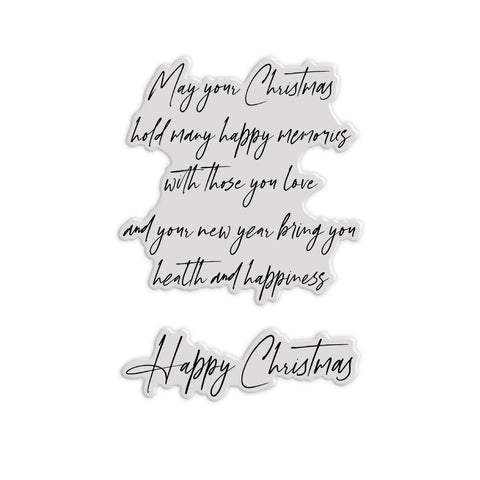 May your Christmas
hold many happy memories
with those you love
and your new year bring you
health and happiness
Happy Christmas